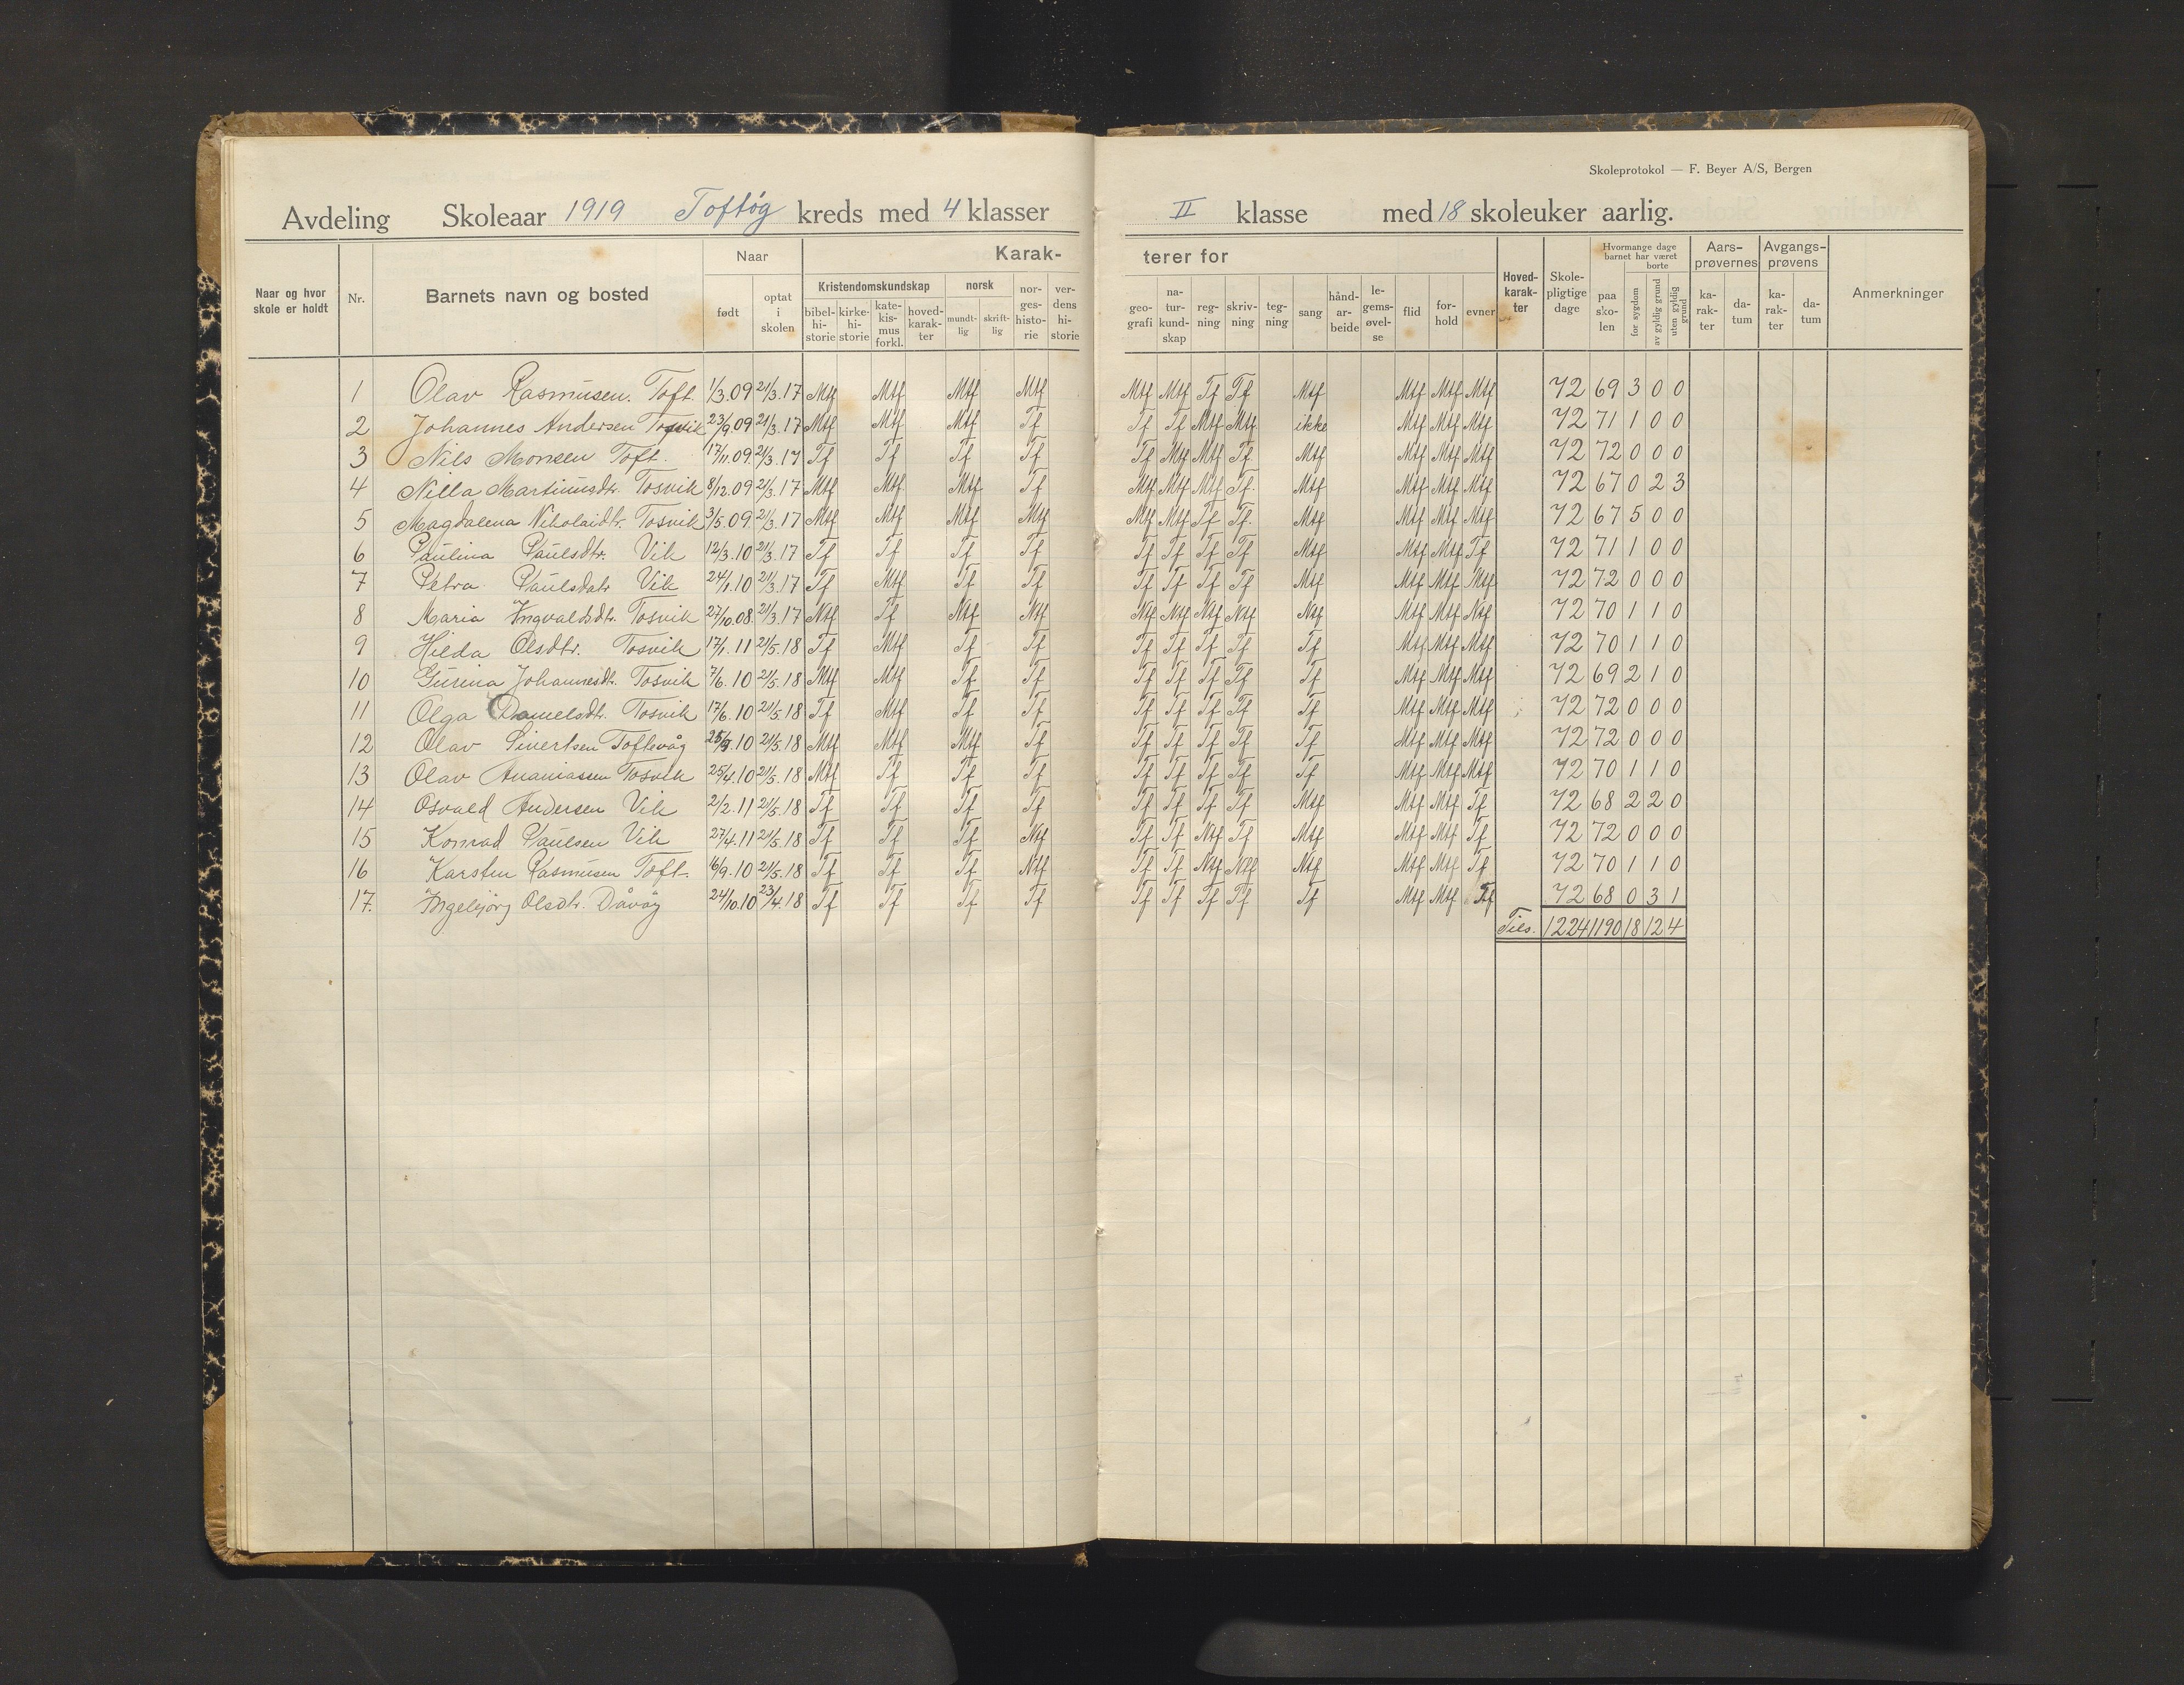 Skoleprotokol — F. Beyer A/S, Bergen
Avdeling Skoleaar 1919 Toftög kreds med 4 klasser II klasse med 18 skoleuker aarlig.
Naar og hvor skole er holdt
Nr.
Barnets navn og bosted
Naar
født
optat i skolen
Karakterer for
Kristendomskundskap
bibel-hi-storie
kirke-hi-storie
kate-kis-mus forkl.
hoved-karak-ter
norsk
mundt-lig
skrift-lig
nor-ges-histo-rie
ver-dens hi-storie
geo-grafi
na-tur-kund-skap
reg-ning
skriv-ning
teg-ning
sang
hånd-ar-beide
le-gems-øvel-se
flid
for-hold
evner
Hoved-karak-ter
Skole-pligtige dage
Hvormange dage barnet har været
paa sko-len
borte
for sygdom
av gyldig grund
uten gyldig grund
Aars-prøvernes
ka-rak-ter
da-tum
Avgangs-prøvens
ka-rak-ter
da-tum
Anmerkninger
1 Olav Rasmusen. Toft. 1/3.09 21/3.17 Mtf Mtf Mtf Mtf Mtf Mtf Tf Tf Mtf Mtf Mtf Mtf 72 69 3 0 0
2 Johannes Andersen Tosvik 23/9 09 21/3.17 Mtf Mtf Mtf Tf Tf Tf Mtf Mtf ikke Mtf Mtf Mtf 72 71 1 0 0
3 Nils Monsen Toft. 17/11.09 21/3.17 Tf Tf Tf Tf Tf Mtf Mtf Tf Mtf Mtf Mtf Mtf 72 72 0 0 0
4 Nilla Martinusdtr. Tosvik 8/12.09 21/3.17 Mtf Mtf Mtf Tf Mtf Mtf Mtf Tf Mtf Mtf Mtf Mtf 72 67 0 2 3
5 Magdalena Nikolaidtr. Tosvik 3/5.09 21/3.17 Mtf Mtf Mtf Mtf Mtf Mtf Tf Tf. Mtf Mtf Mtf Mtf 72 67 5 0 0
6 Paulina Paulsdtr. Vik 12/3.10 21/3.17 Tf Tf Tf Tf Tf Tf Tf Tf Mtf Mtf Mtf Tf 72 71 1 0 0
7 Petra Paulsdatr Vik 24/1.10 21/3.17 Tf Mtf Tf Tf Tf Tf Tf Tf Mtf Mtf Mtf Mtf 72 72 0 0 0
8 Maria Ingvaldsdtr. Tosvik 27/10.08. 21/3.17 Mtf Tf Mtf Mtf Mtf Mtf Mtf Mtf Mtf Mtf Mtf Mtf 72 70 1 1 0
9 Hilda Olsdtr. Tosvik 17/1.11 21/5.18 Tf Mtf Tf Tf Tf Tf Tf Tf Tf Mtf Mtf Mtf 72 70 1 1 0
10 Gurina Johannesdtr. Tosvik 7/6.10 21/5.18 Mtf Mtf Tf Tf Tf Tf Tf Tf Tf Mtf Mtf Mtf 72 69 2 1 0
11 Olga Danielsdtr. Tosvik 17/6.10 21/5.18 Tf Mtf Tf Tf Tf Tf Tf Tf Tf Mtf Mtf Mtf 72 72 0 0 0
12 Olav Sivertsen Toftevåg 25/9.10 21/5.18 Mtf Mtf Mtf Tf Tf Tf Tf Tf Tf Mtf Mtf Mtf 72 72 0 0 0
13 Olav Ananiassen Tosvik 25/4.10 21/5.18 Mtf Tf Tf Tf Tf Tf Tf Tf Tf Mtf Mtf Mtf 72 70 1 1 0
14 Osvald Andersen Vik 2/2.11 21/5.18 Tf Tf Tf Tf Tf Tf Tf Tf Mtf Mtf Mtf Tf 72 68 2 2 0
15 Konrad Paulsen Vik 27/4.11 21/5.18 Tf Tf Tf Mtf Tf Tf Mtf Tf Mtf Mtf Mtf Tf 72 72 0 0 0
16 Karsten Rasmusen Toft. 16/9.10 21/5.18 Tf Tf Tf Mtf Tf Tf Mtf Mtf Mtf Mtf Mtf Tf 72 70 1 1 0
17. Ingebjörg Olsdtr. Dåvöy 24/10.10 23/4.18 Tf Tf Tf Tf Tf Tf Tf Tf Tf Mtf Mtf Tf 72 68 0 3 1
Tils. 1224 1190 18 12 4